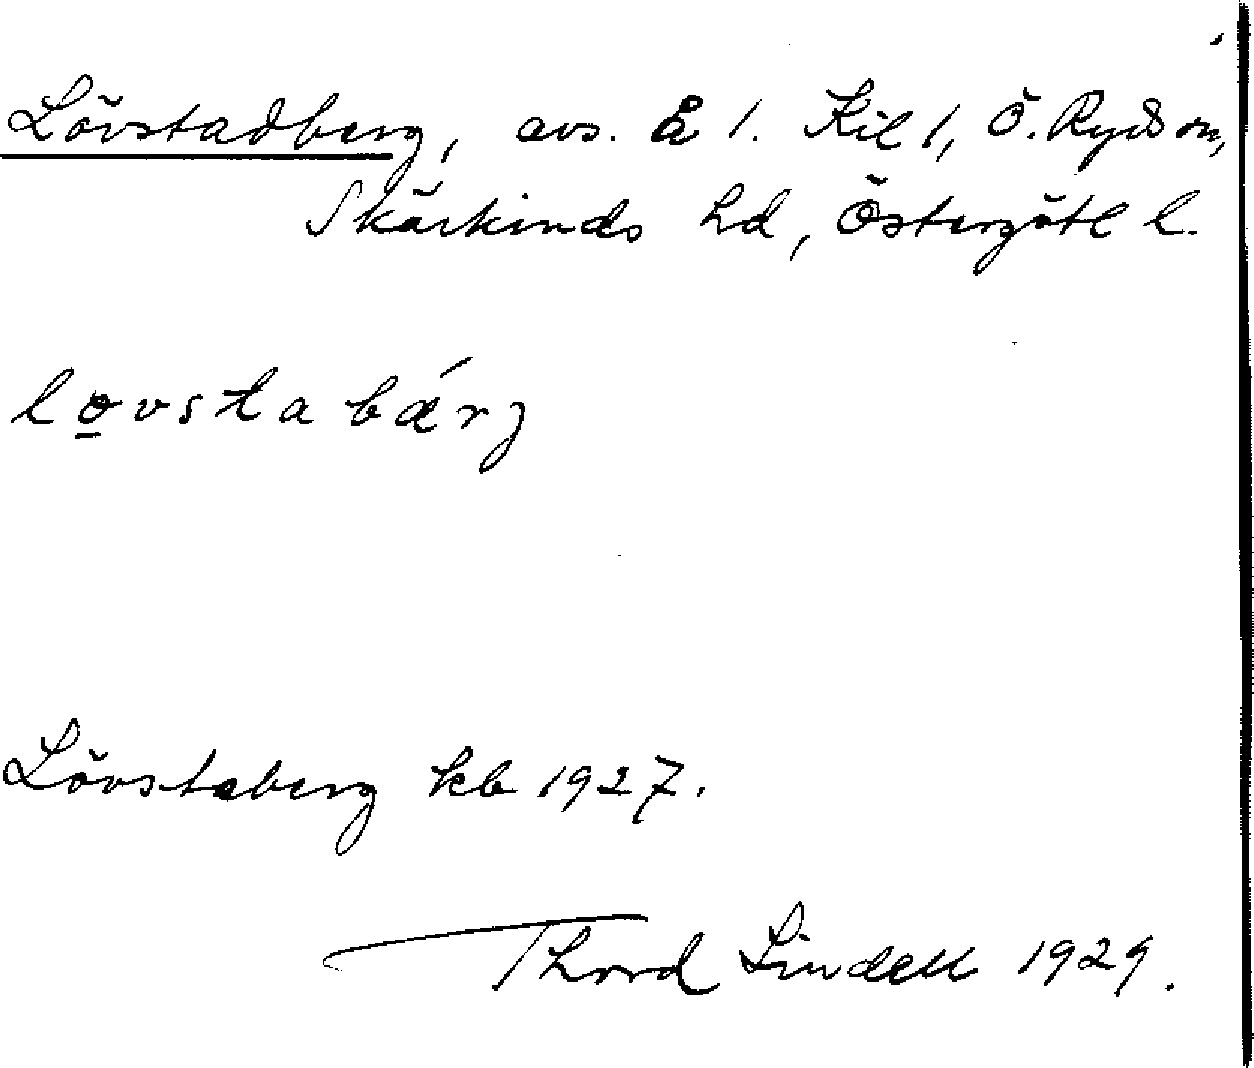 Lövstadberg, avs. Å 1. Kil 1, Ö. Ryds sn,
Skärkinds hd, Östergötl l.
lo̲vstabǽrj
Lövstaberg kb 1927.
Thord Lindell 1929.